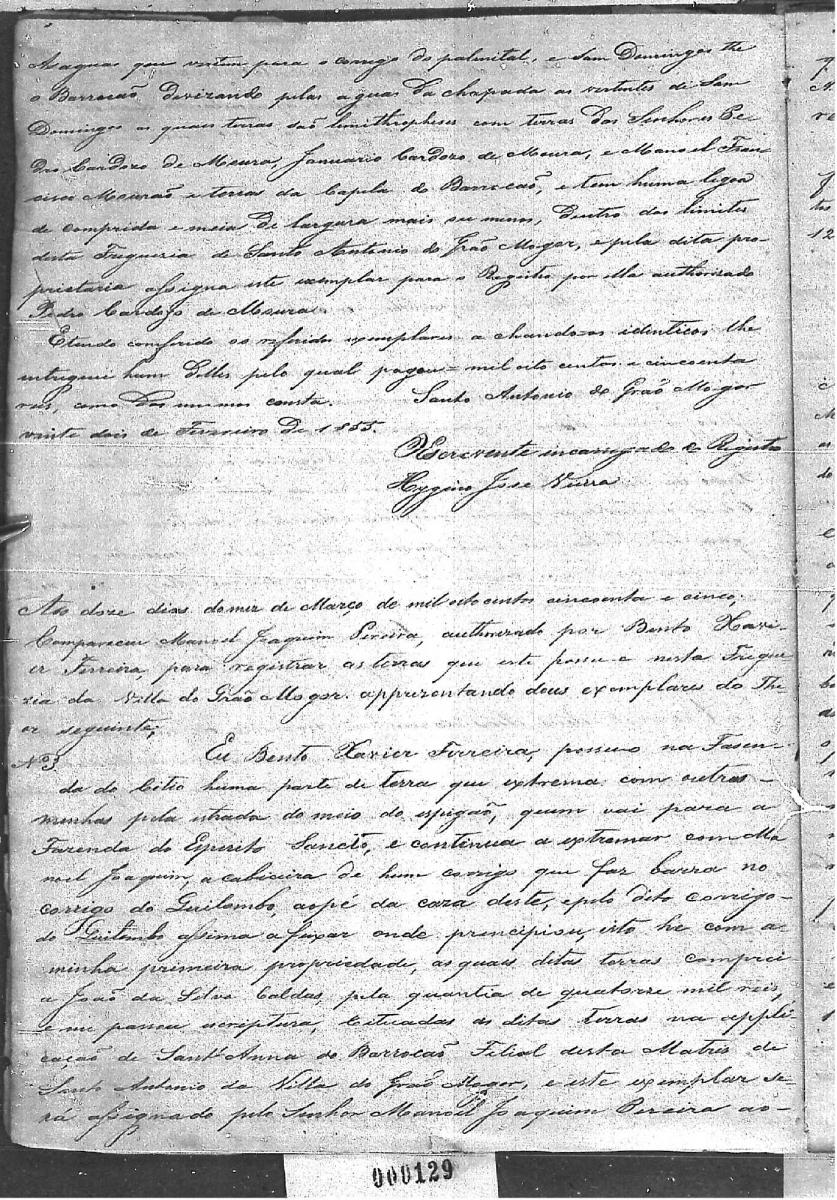 As aguas que vertem para o corrego do palmital, e Sam Domingos the
o Barrocaõ, devizando pelas aguas da chapada as vertentes de Sam
Domingos as quais terras saõ limithrophes com terras dos Senhores Pe-
dro Cardozo de Moura, Januario Cardozo de Moura, e Manoel Fran-
cisco Mouraõ e terras da Capela do Barrocaõ, e tem huma legoa
de comprida e meia de largura mais ou menos, dentro dos limites
desta Freguezia de Santo Antonio do Graõ Mogor, e pela dita pro-
prietaria assigna este exemplar para o Registro por ella authorizado
Pedro Cardozo de Moura
E tendo conferido os referidos exemplares a chando-os identicos, lhe
entreguei hum delles pelo qual pagou = mil oito centos e cincoenta
reis, como dos mesmos consta. Santo Antonio do Graõ Mogor
vinte dois de Fevereiro de 1855.
O Escrevente incarregado do Registro
Hygino Jose Vieira
Aos doze dias do mez de Março de mil oito centos cincoenta e cinco,
Compareceu Manoel Joaquim Pereira, authorizado por Bento Xavi-
er Ferreira, para registrar as terras que este possue nesta Fregue
zia da Villa do Graõ Mogor. apprezentando dous exemplares do The
or seguinte,
Nº 3 Eu Bento Xavier Ferreira, possuo na Fasen-
da do Citio huma parte de terra que extrema com outras -
minhas pela estrada do meio do espigaõ, quem vai para a
Fazenda do Espirito Sancto, e continua a extremar com Ma
noel Joaquim, a cabiceira de hum corrigo que faz barra no
corrigo do Quilombo, ao pé da caza deste, e pelo dito corrigo-
do Quilombo assima a fixar onde principiou, isto he com a-
minha primeira propriedade, as quais ditas terras comprei
a Joaõ da Silva Caldas, pela quantia de quatorze mil reis,
e me passou scriptura, Cituadas as ditas terras na appli
caçaõ de Sant'Anna do Barrocaõ Filial desta Matris de
Santo Antonio da Villa do Graõ Mogor, e este exemplar se-
rá assignado pelo Senhor Manoel Joaquim Pereira ao-
000129